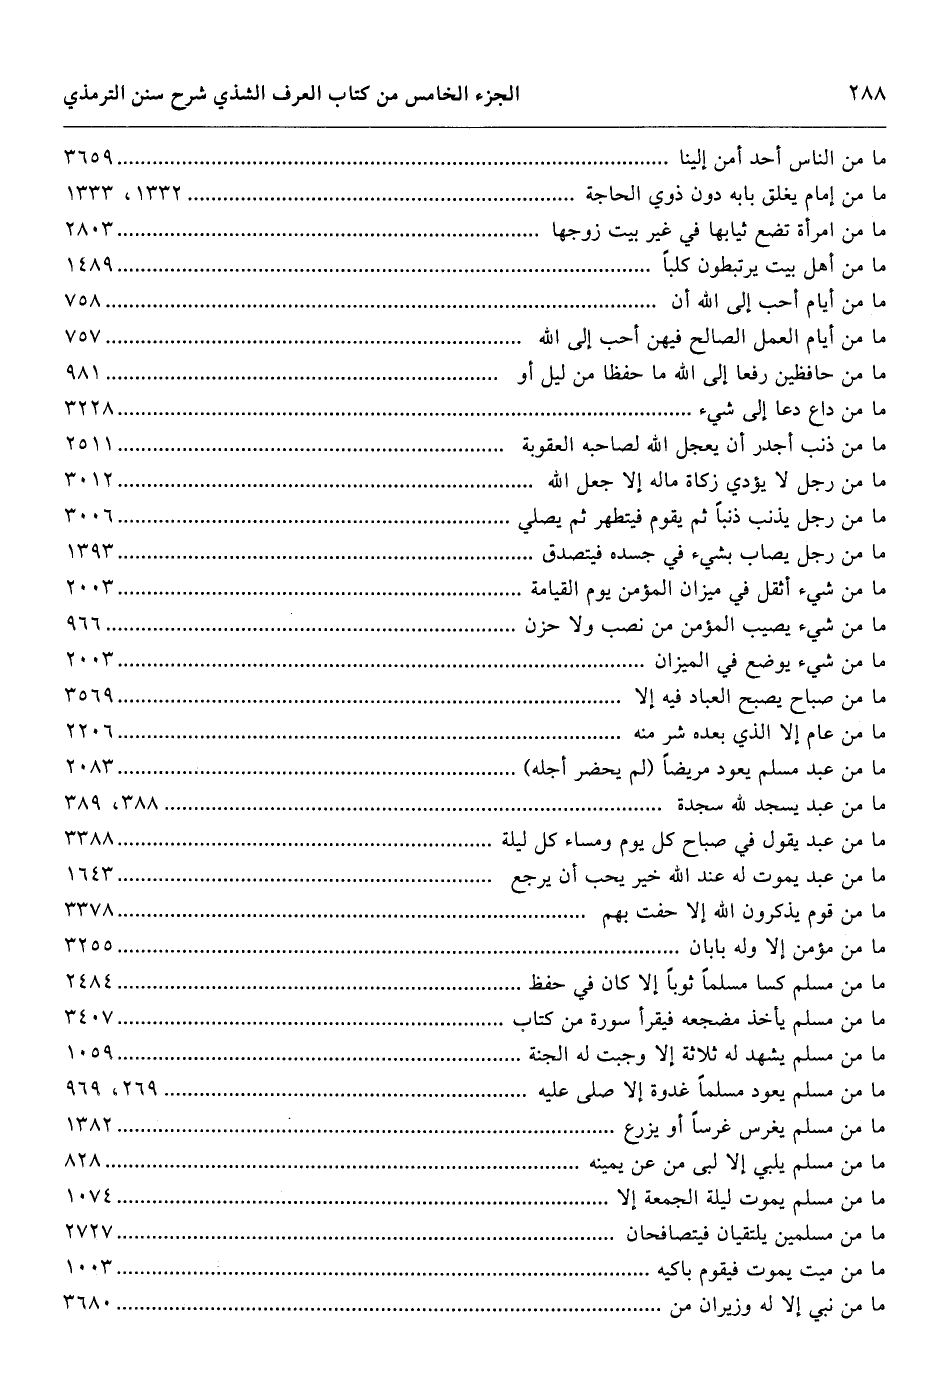 ٢٨٨ الجزء الخامس من كتاب العرف الشذي شرح سنن الترمذي
ما من الناس أحد أمن إلينا ........ ٣٦٥٩
ما من إمام يغلق بابه دون ذوي الحاجة ........ ١٣٣٢، ١٣٣٣
ما من امرأة تضع ثيابها في غير بيت زوجها ........ ٢٨٠٣
ما من أهل بيت يرتبطون كلباً ........ ١٤٨٩
ما من أيام أحب إلى الله أن ........ ٧٥٨
ما من أيام العمل الصالح فيهن أحب إلى الله ........ ٧٥٧
ما من حافظين رفعا إلى الله ما حفظا من ليل أو ........ ٩٨١
ما من داع دعا إلى شيء ........ ٣٢٢٨
ما من ذنب أجدر أن يعجل الله لصاحبه العقوبة ........ ٢٥١١
ما من رجل لا يؤدي زكاة ماله إلا جعل الله ........ ٣٠١٢
ما من رجل يذنب ذنباً ثم يقوم فيتطهر ثم يصلي ........ ٣٠٠٦
ما من رجل يصاب بشيء في جسده فيتصدق ........ ١٣٩٣
ما من شيء أثقل في ميزان المؤمن يوم القيامة ........ ٢٠٠٣
ما من شيء يصيب المؤمن من نصب ولا حزن ........ ٩٦٦
ما من شيء يوضع في الميزان ........ ٢٠٠٣
ما من صباح يصبح العباد فيه إلا ........ ٣٥٦٩
ما من عام إلا الذي بعده شر منه ........ ٢٢٠٦
ما من عبد مسلم يعود مريضاً (لم يحضر أجله) ........ ٢٠٨٣
ما من عبد يسجد لله سجدة ........ ٣٨٨، ٣٨٩
ما من عبد يقول في صباح كل يوم ومساء كل ليلة ........ ٣٣٨٨
ما من عبد يموت له عند الله خير يحب أن يرجع ........ ١٦٤٣
ما من قوم يذكرون الله إلا حفت بهم ........ ٣٣٧٨
ما من مؤمن إلا وله بابان ........ ٣٢٥٥
ما من مسلم كسا مسلماً ثوباً إلا كان في حفظ ........ ٢٤٨٤
ما من مسلم يأخذ مضجعه فيقرأ سورة من كتاب ........ ٣٤٠٧
ما من مسلم يشهد له ثلاثة إلا وجبت له الجنة ........ ١٠٥٩
ما من مسلم يعود مسلماً غدوة إلا صلى عليه ........ ٢٦٩، ٩٦٩
ما من مسلم يغرس غرساً أو يزرع ........ ١٣٨٢
ما من مسلم يلبي إلا لبى من عن يمينه ........ ٨٢٨
ما من مسلم يموت ليلة الجمعة إلا ........ ١٠٧٤
ما من مسلمين يلتقيان فيتصافحان ........ ٢٧٢٧
ما من ميت يموت فيقوم باكيه ........ ١٠٠٣
ما من نبي إلا له وزيران من ........ ٣٦٨٠